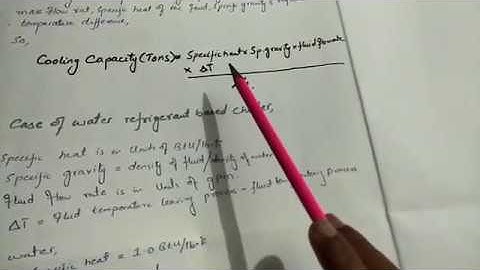 max flow rat, Specific heat of the fluid, Sp. gravity &
temperature difference,
So,
Cooling Capacity (Tons) = Specific heat x Sp. gravity x fluid flow rate
x ΔT
Case of water refrigerant based chiller,
Specific heat is in Unit of BTU/lb-F
Specific gravity = density of fluid/density of water
fluid flow rate is in Unit of gpm.
ΔT = fluid temperature leaving process - fluid temp entering process
water,
Specific heat = 1.0 Btu/lb-F